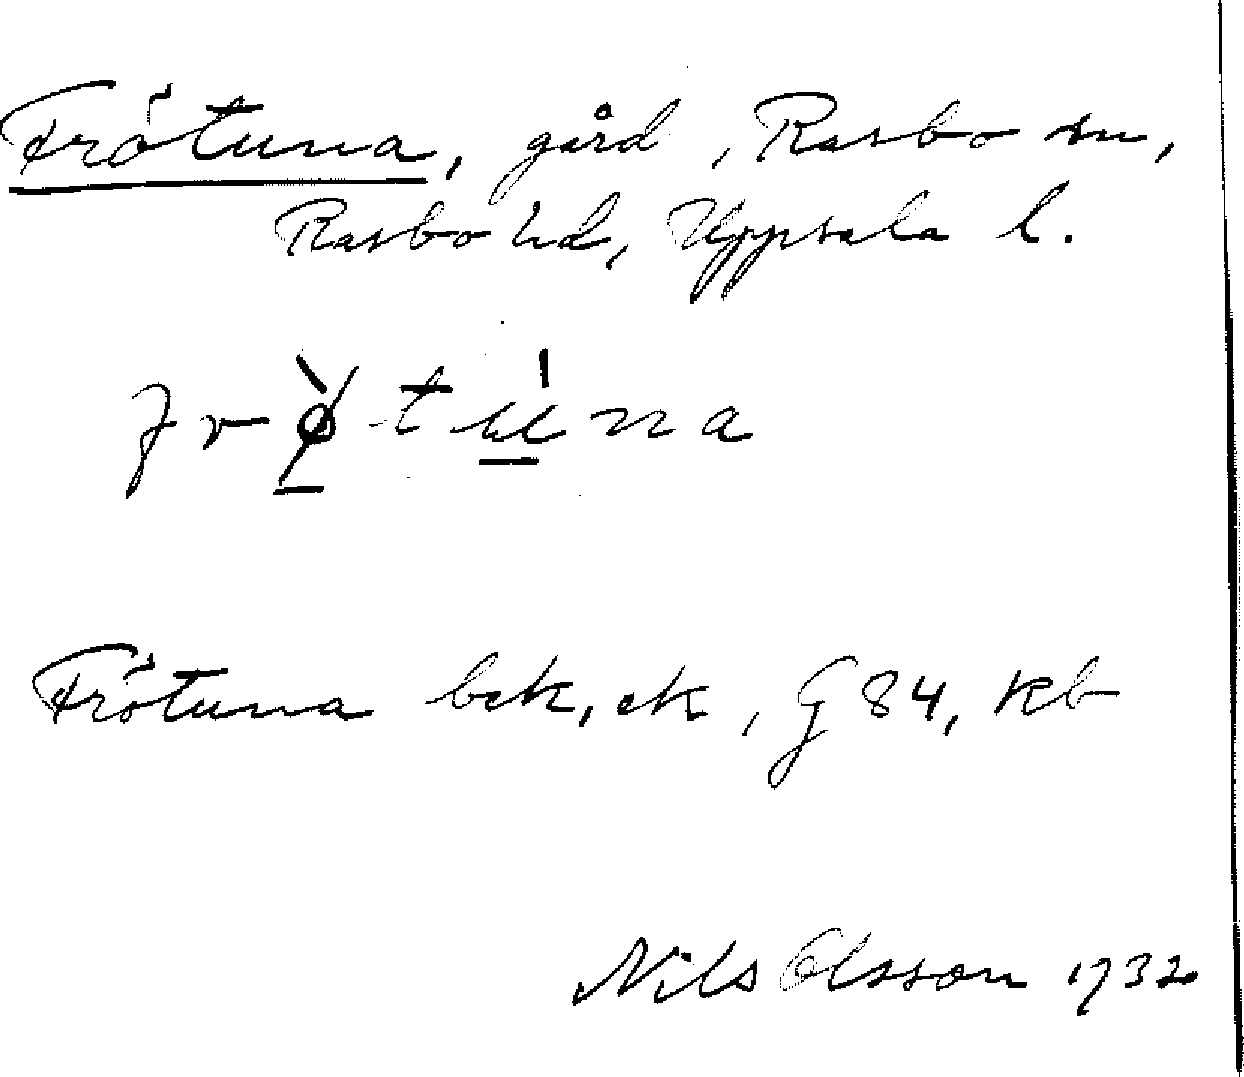 Frötuna, gård, Rasbo sn,
Rasbo hd, Uppsala l.
frø̀túna
Frötuna bek, ek, G 84, Kb
Nils Olsson 1932